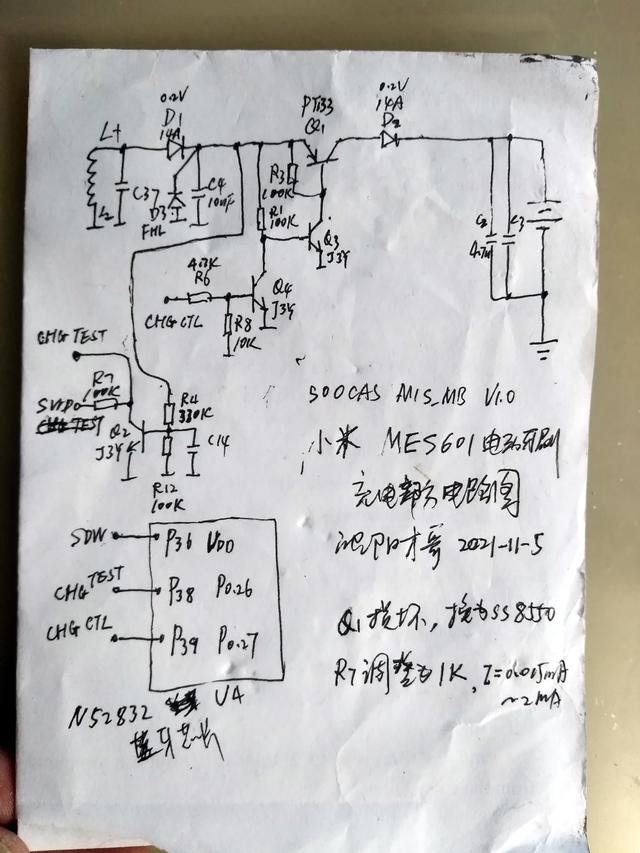 0.2V
D1
14A
L+
L2
C37
D3
FHL
C4
10uF
PT133
Q1
R3
100K
R1
100K
Q3
J3Y
0.2V
14A
D2
C2
4.7u
C3
4.7K
R6
CHG CTL
R8
10K
Q4
J3Y
CHG TEST
R7
100K
Q2
J3Y
R4
330K
C14
R12
100K
SOOCAS M1S_MB V1.0
小米 MES601 电动牙刷
充电部分电路图
2021-11-5
SDW
P36 VDD
CHG TEST
P38 P0.26
CHG CTL
P39 P0.27
N52832 U4
蓝牙芯片
Q1 损坏，换为SS8550
R7 调整为1K, I=0.015mA
~2mA